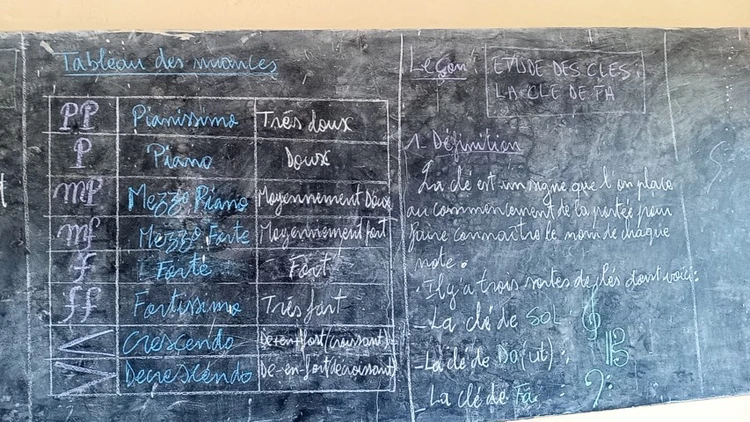 Tableau des nuances
PP Pianissimo Très doux
P Piano Doux
mP Mezzo Piano Moyennement Doux
mf Mezzo Forte Moyennement fort
f Forte Fort
ff Fortissimo Très fort
Crescendo De+en+fort(croissant)
Decrescendo De-en-fort(decroissant)
Leçon: ETUDE DES CLES:
LA CLE DE FA
1. Définition
La clé est un signe que l'on place
au commencement de la portée pour
faire connaître le nom de chaque
note.
. Il y a trois sortes de clés dont voici:
- La clé de SOL:
- La clé de Do (ut):
- La clé de Fa :